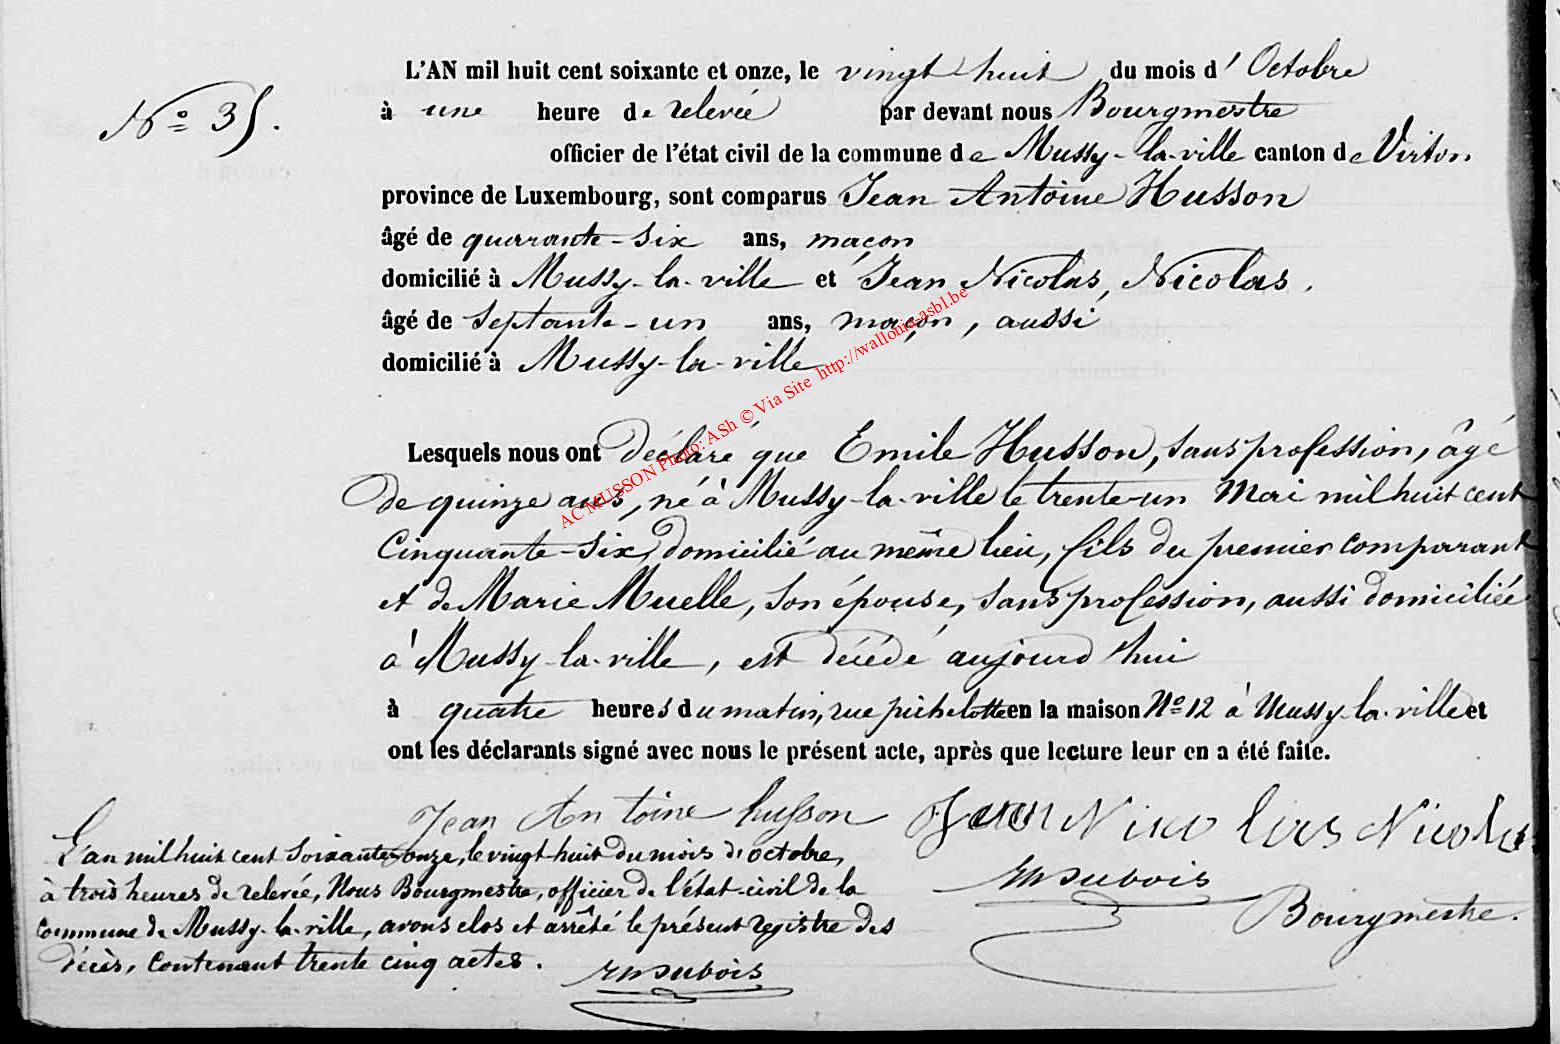 L'AN mil huit cent soixante et onze, le vingt huit du mois d' Octobre
N° 35.
à une heure de relevée par devant nous Bourgmestre
officier de l'état civil de la commune de Mussy-la-ville canton de Virton
province de Luxembourg, sont comparus Jean Antoine Husson
âgé de quarante-six ans, maçon
domicilié à Mussy-la-ville et Jean Nicolas, Nicolas,
âgé de septante-un ans, maçon, aussi
domicilié à Mussy-la-ville
AC MUSSON Photo: ASh © Via Site http://wallonia-asbl.be
Lesquels nous ont déclaré que Emile Husson, sans profession, âgé
de quinze ans, né à Mussy-la-ville le trente-un Mai mil huit cent
Cinquante-six, domicilié au même lieu, fils du premier comparant
et de Marie Muelle, son épouse, sans profession, aussi domiciliée
à Mussy-la-ville, est décédé aujourd'hui
à quatre heures du matin, rue pichelotte en la maison N° 12 à Mussy-la-ville et
ont les déclarants signé avec nous le présent acte, après que lecture leur en a été faite.
Jean Antoine husson Jean Nicolas Nicolas
L'an mil huit cent soixante onze, le vingt-huit du mois d'octobre,
à trois heures de relevée, Nous Bourgmestre, officier de l'état-civil de la
Commune de Mussy-la-ville, avons clos et arrêté le présent registre des
décès, contenant trente cinq actes.
Dubois
Bourgmestre.
Dubois